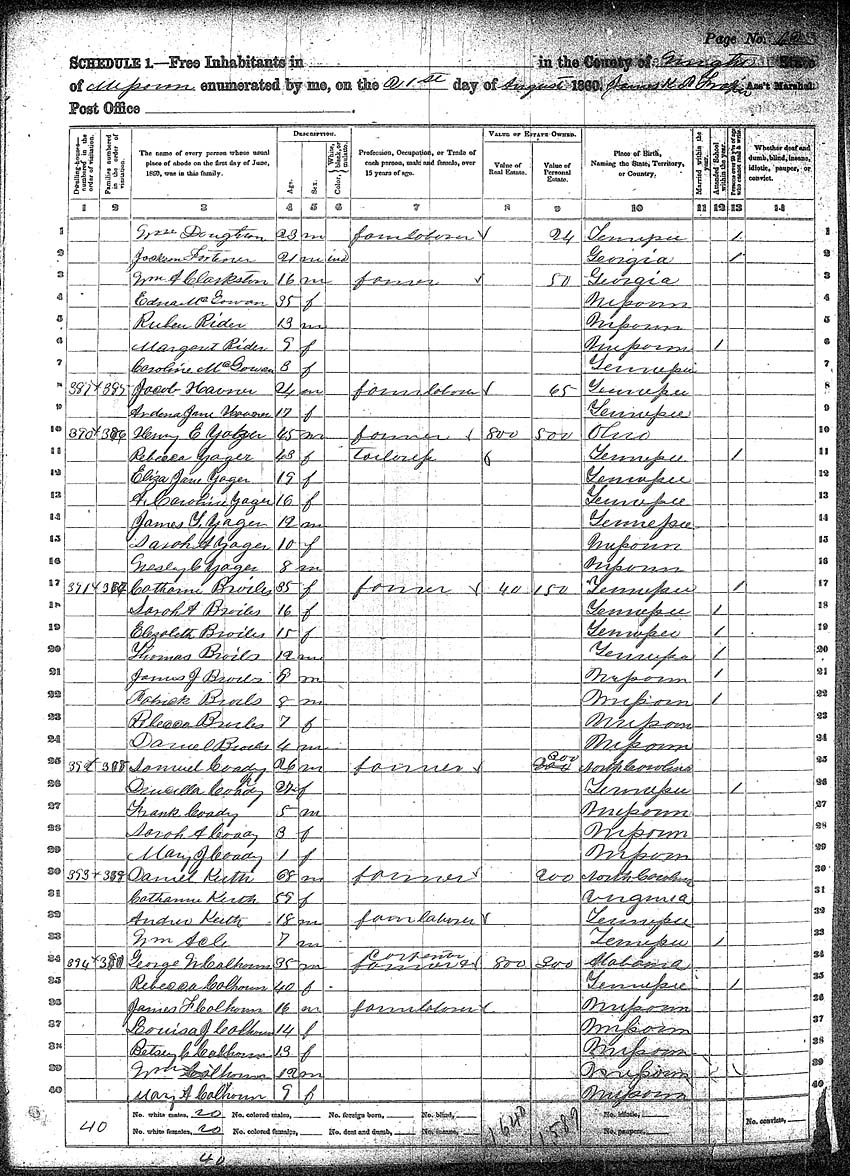 Page No.
SCHEDULE 1.—Free Inhabitants in in the County of State
of Missouri enumerated by me, on the 21st day of August 1860. James Ass't Marshal.
Post Office
Dwelling-houses—numbered in the order of visitation.
Families numbered in the order of visitation.
The name of every person whose usual place of abode on the first day of June, 1860, was in this family.
DESCRIPTION.
Age.
Sex.
Color, White, black, or mulatto.
Profession, Occupation, or Trade of each person, male and female, over 15 years of age.
VALUE OF ESTATE OWNED.
Value of Real Estate.
Value of Personal Estate.
Place of Birth, Naming the State, Territory, or Country.
Married within the year.
Attended School within the year.
Persons over 20 y'rs of age who cannot read & write.
Whether deaf and dumb, blind, insane, idiotic, pauper, or convict.
1 2 3 4 5 6 7 8 9 10 11 12 13 14
1 Wm 23 m farm laborer 24 Tennessee 1 1
2 21 m Georgia 1 2
3 Wm A Clarkston 16 m farmer 50 Georgia 3
4 Edna McGowan 35 f Missouri 4
5 Ruben Rider 13 m Missouri 5
6 Margaret Rider 9 f Missouri 1 6
7 Caroline McGowan 3 f Tennessee 7
8 389 385 Jacob Havner 24 m farm laborer 65 Tennessee 8
9 Jane 17 f Tennessee 9
10 390 386 Henry E Yager 45 m farmer 800 500 Ohio 10
11 Rebecca Yager 43 f Tennessee 1 11
12 Eliza Jane Yager 19 f Tennessee 12
13 Caroline Yager 16 f Tennessee 13
14 James Y. Yager 12 m Tennessee 14
15 Sarah A Yager 10 f Missouri 15
16 Wesley C Yager 8 m Missouri 16
17 391 387 Catharine Broiles 35 f farmer 40 150 Tennessee 1 17
18 Sarah A Broiles 16 f Tennessee 1 18
19 Elizabeth Broiles 15 f Tennessee 1 19
20 Thomas Broils 12 m Tennessee 1 20
21 James J Broils m Missouri 1 21
22 Patrick Broils 8 m Missouri 1 22
23 Rebecca Broiles 7 f Missouri 23
24 Daniel Broiles 4 m Missouri 24
25 392 388 Samuel Coady 26 m farmer 200 North Carolina 25
26 Pricilla Coady 24 f Tennessee 1 26
27 Frank Coady 5 m Missouri 27
28 Sarah A Coady 3 f Missouri 28
29 Mary J Coady 1 f Missouri 29
30 393 389 Daniel Keith 68 m farmer 200 North Carolina 30
31 Catharine Keith 59 f Virginia 31
32 Andrew Keith 18 m farm laborer Tennessee 32
33 Wm 7 m Tennessee 1 33
34 394 George W Calhoun 35 m farmer & Carpenter 800 300 Alabama 34
35 Rebecca Calhoun 40 f Tennessee 1 35
36 James F Calhoun 16 m farm laborer Missouri 36
37 Louisa J Calhoun 14 f Missouri 37
38 Betsey C Calhoun 13 f Missouri 38
39 Wm Calhoun 12 m Missouri 39
40 Mary A Calhoun 9 f Missouri 40
40 No. white males, 20 No. colored males, No. foreign born, No. blind, 1640 1589 No. idiotic, No. convicts,
No. white females, 20 No. colored females, No. deaf and dumb, No. insane, No. paupers,
40